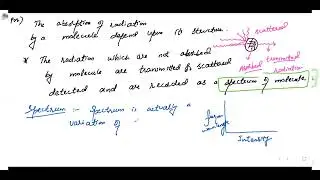 The absorption of radiation
by a molecule depend upon its structure.
* The radiation which are not absorbed
by molecule are transmitted & scattered
detected and are recorded as a spectrum of molecule.
scattered
transmitted
radiation
Spectrum :- Spectrum is actually a
variation of
Intensity